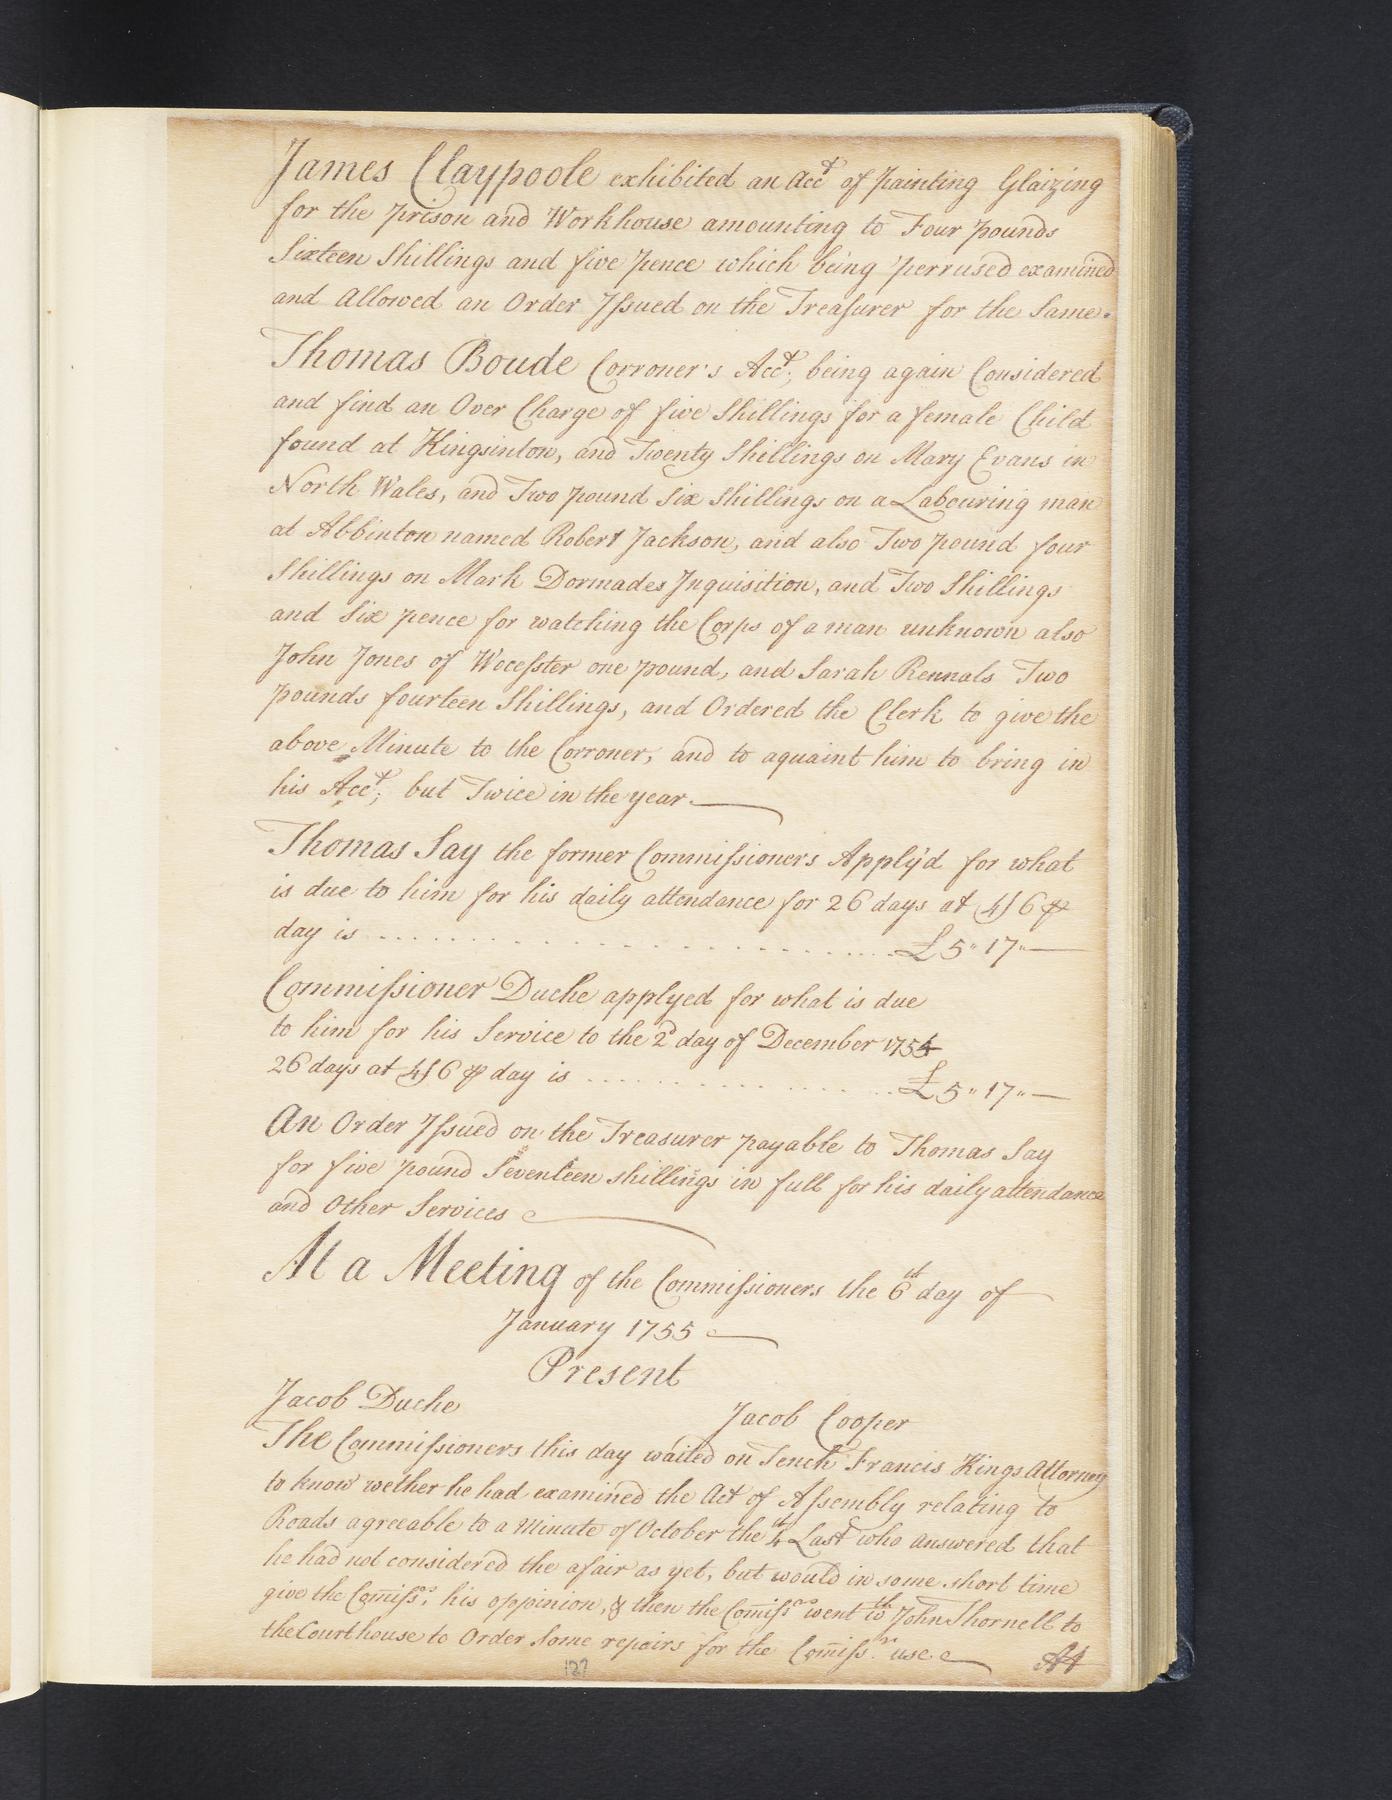 James Claypoole exhibited an Acct of painting Glaizing
for the prison and Workhouse amounting to Four pounds
Sixteen Shillings and five pence which being perrused examined
and Allowed an Order Issued on the Treasurer for the Same.
Thomas Boude Corroner's Acct; being again Considered
and find an Over Charge of five Shillings for a female Child
found at Kingsinton, and Twenty Shillings on Mary Evans in
North Wales, and Two pound Six Shillings on a Labouring man
at Abbinton named Robert Jackson, and also Two pound four
Shillings on Mark Dormades Inquisition, and Two Shillings
and Six pence for watching the Corps of a man unknown also
John Jones of Wocesster one pound, and Sarah Rennals Two
pounds fourteen Shillings, and Ordered the Clerk to give the
above Minute to the Corroner, and to aquaint him to bring in
his Acct; but Twice in the year.
Thomas Say the former Commissioners Apply'd for what
is due to him for his daily attendance for 26 days at 4/6 ⅌
day is .......... £5"17"—
Commissioner Duche applyed for what is due
to him for his Service to the 2d day of December 1754
26 days at 4/6 ⅌ day is .......... £5"17"—
An Order Issued on the Treasurer payable to Thomas Say
for five pound Seventeen shillings in full for his daily attendance
and Other Services
At a Meeting of the Commissioners the 6th day of
January 1755
Present
Jacob Duche
Jacob Cooper
The Commissioners this day waited on Tench Francis Kings Attorney
to know wether he had examined the Act of Assembly relating to
Roads agreeable to a Minute of October the 4th Last who answered that
he had not considered the afair as yet, but would in some short time
give the Comissrs his oppinion, & then the Comissrs went wth John Thornell to
the Courthouse to Order Some repairs for the Comissrs use
At
127